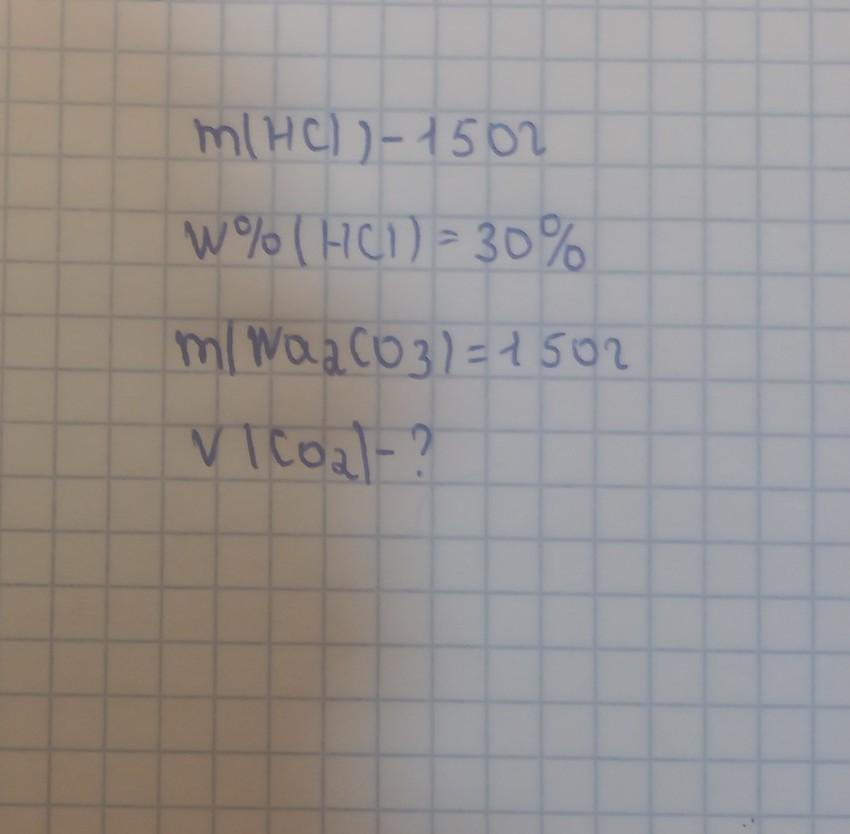 m(HCl)-150г
W%(HCl)=30%
m(Na2CO3)=150г
V(CO2)-?